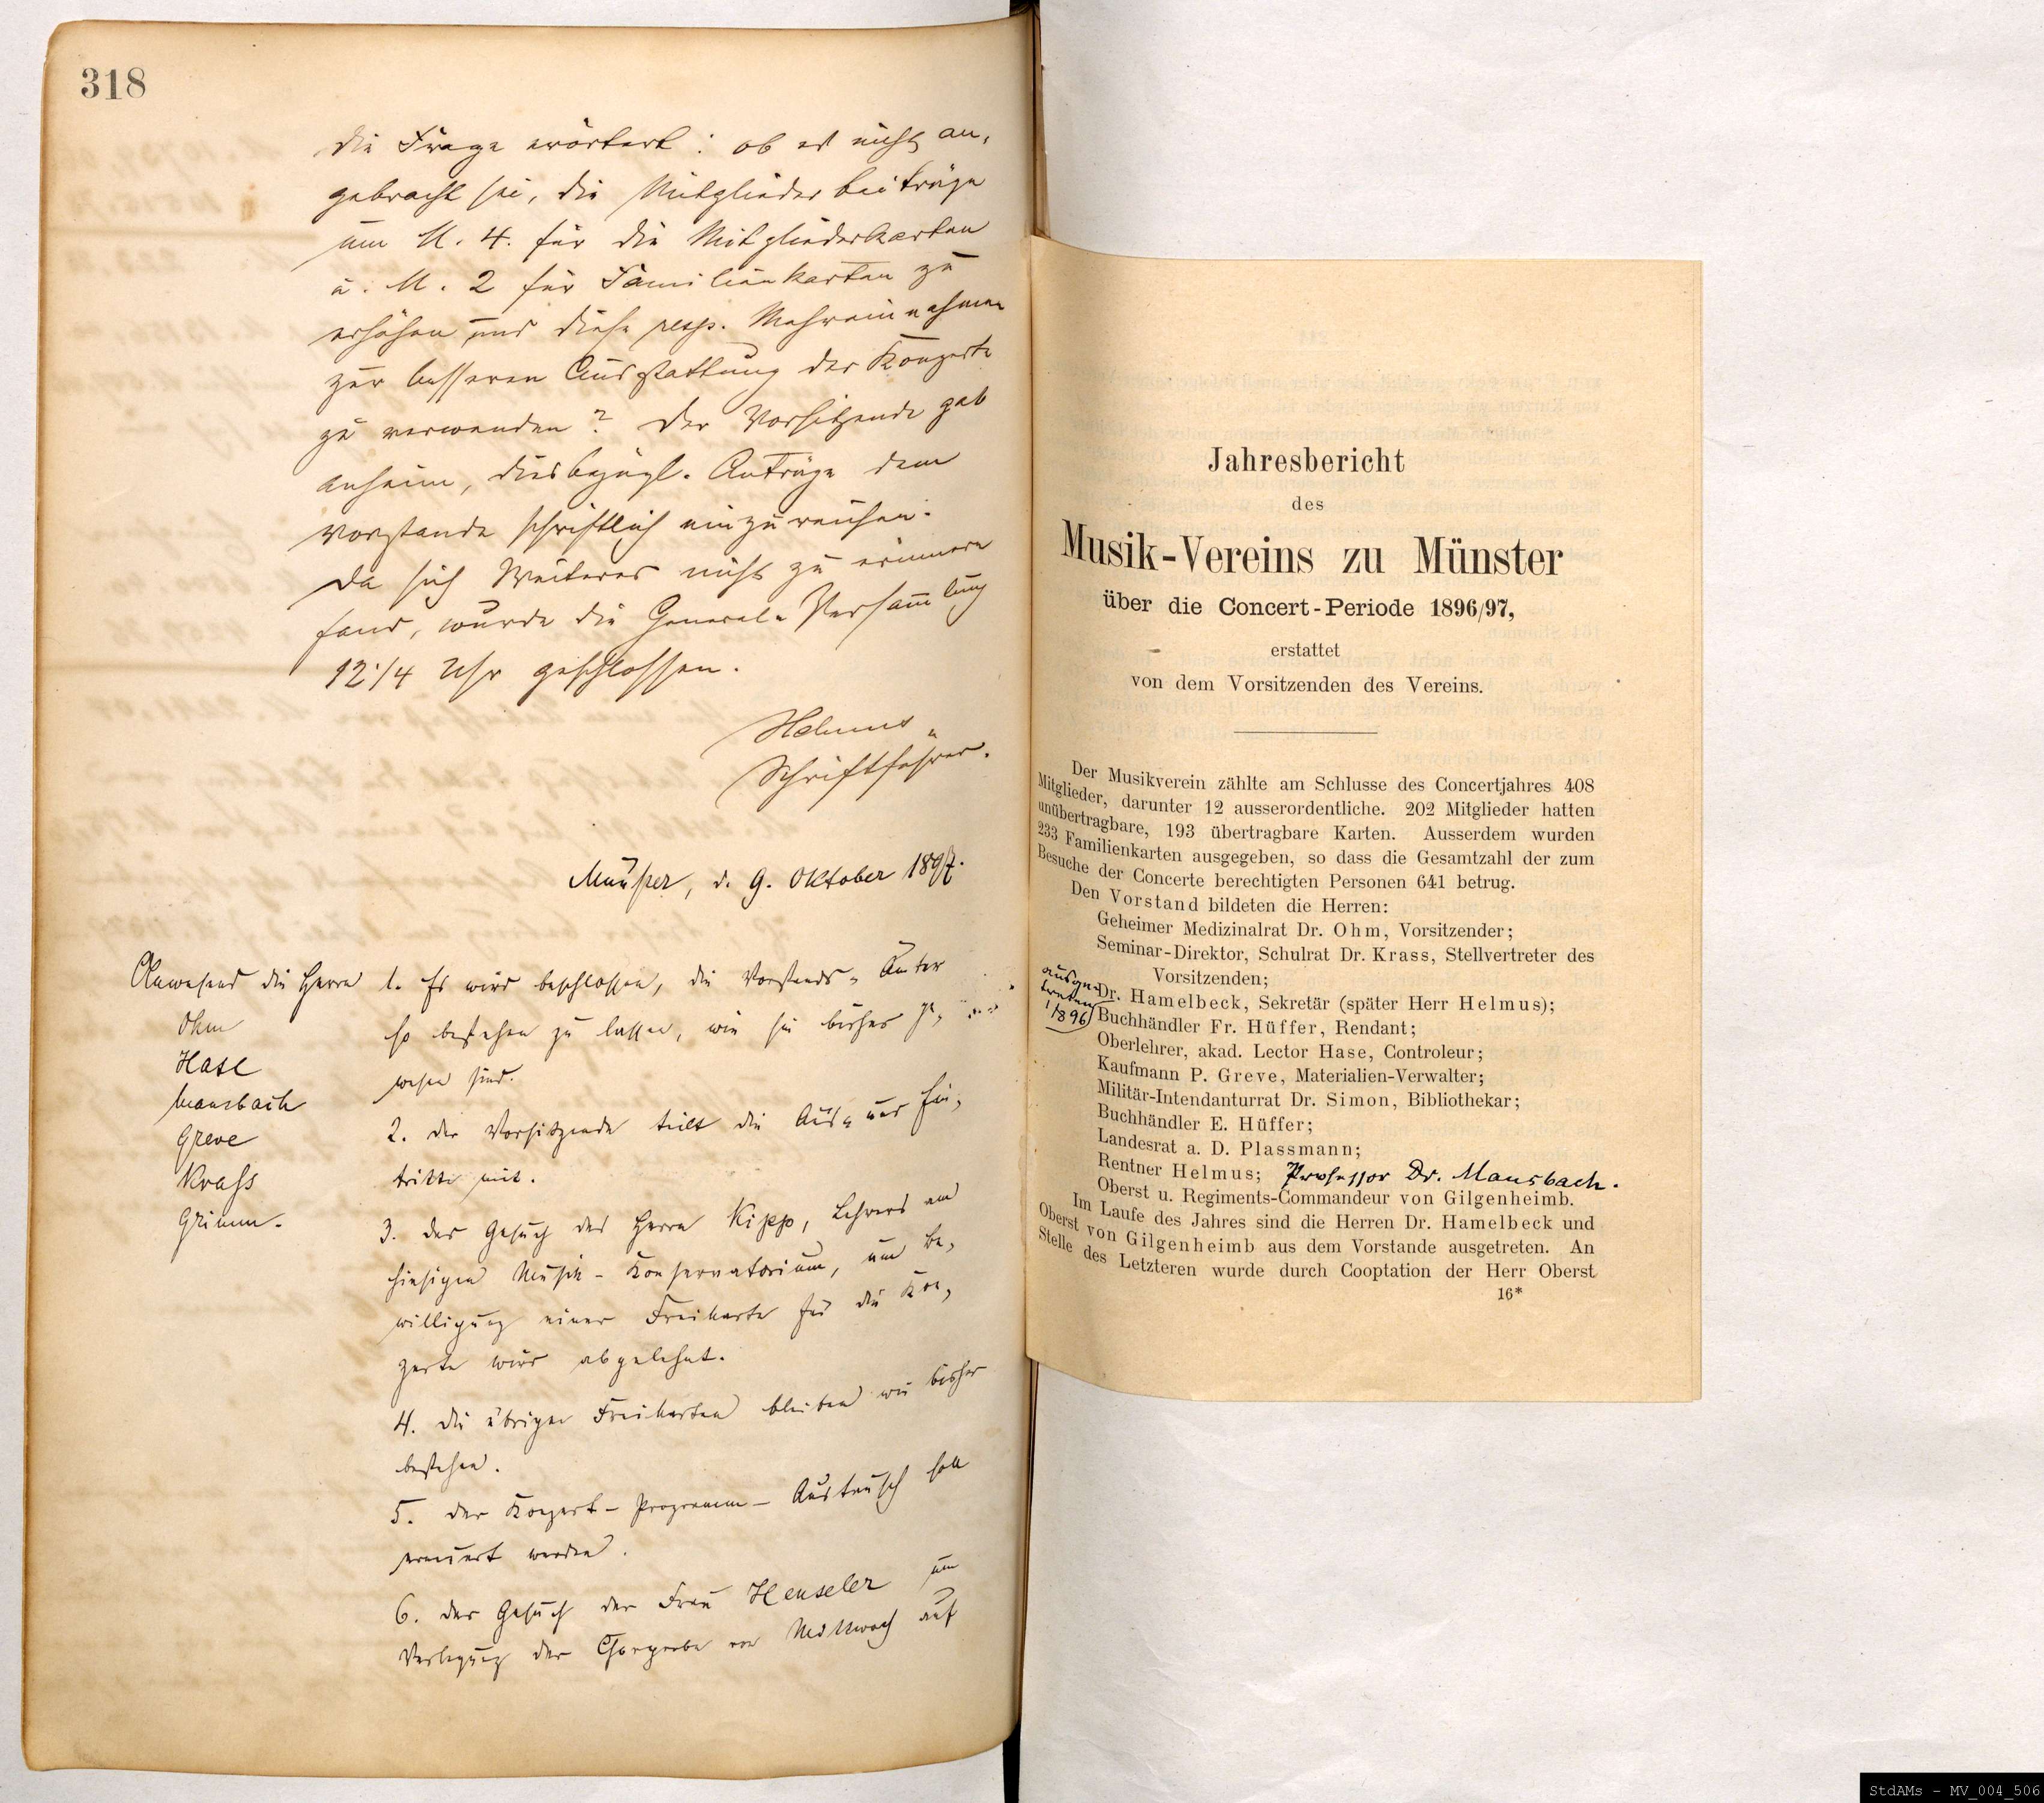 318
die Frage erörtert: ob es nicht an-
gebracht sei, die Mitglieder beiträge
um M. 4. für die Mitgliederkarten
u. M. 2 für Familienkarten zu
erhöhen und diese resp. Mehreinnahmen
zur besseren Ausstattung der Konzerte
zu verwenden? Der Vorsitzende gab
anheim, diesbezügl. Anträge dem
Vorstande schriftlich einzureichen.
Da sich Weiteres nicht zu erinnern
fand, wurde die General-Versammlung
12 1/4 Uhr geschlossen.
Helmus
Schriftführer.
Münster, d. 9. Oktober 1897.
Anwesend die Herrn
Ohm
Hase
Mausbach
Greve
Krass
Grimm.
1. Es wird beschlossen, die Vorstands-Ämter
so bestehen zu lassen, wie sie bisher ge-
wesen sind.
2. Der Vorsitzende teilt die Aus- und Ein-
tritte mit.
3. Das Gesuch des Herrn Kipp, Lehrers am
hiesigen Musik-Konservatorium, um Be-
willigung einer Freikarte für die Kon-
zerte wird abgelehnt.
4. Die übrigen Freikarten bleiben wie bisher
bestehen.
5. Der Konzert-Programm-Austausch soll
erneuert werden.
6. Das Gesuch der Frau Henseler um
Verlegung der Chorprobe von Mittwoch auf
Jahresbericht
des
Musik-Vereins zu Münster
über die Concert-Periode 1896/97,
erstattet
von dem Vorsitzenden des Vereins.
Der Musikverein zählte am Schlusse des Concertjahres 408
Mitglieder, darunter 12 ausserordentliche. 202 Mitglieder hatten
unübertragbare, 193 übertragbare Karten. Ausserdem wurden
233 Familienkarten ausgegeben, so dass die Gesamtzahl der zum
Besuche der Concerte berechtigten Personen 641 betrug.
Den Vorstand bildeten die Herren:
Geheimer Medizinalrat Dr. Ohm, Vorsitzender;
Seminar-Direktor, Schulrat Dr. Krass, Stellvertreter des
Vorsitzenden;
ausge-
treten
1896
Dr. Hamelbeck, Sekretär (später Herr Helmus);
Buchhändler Fr. Hüffer, Rendant;
Oberlehrer, akad. Lector Hase, Controleur;
Kaufmann P. Greve, Materialien-Verwalter;
Militär-Intendanturrat Dr. Simon, Bibliothekar;
Buchhändler E. Hüffer;
Landesrat a. D. Plassmann;
Rentner Helmus; Professor Dr. Mausbach.
Oberst u. Regiments-Commandeur von Gilgenheimb.
Im Laufe des Jahres sind die Herren Dr. Hamelbeck und
Oberst von Gilgenheimb aus dem Vorstande ausgetreten. An
Stelle des Letzteren wurde durch Cooptation der Herr Oberst
16*
StdAMs - MV_004_506